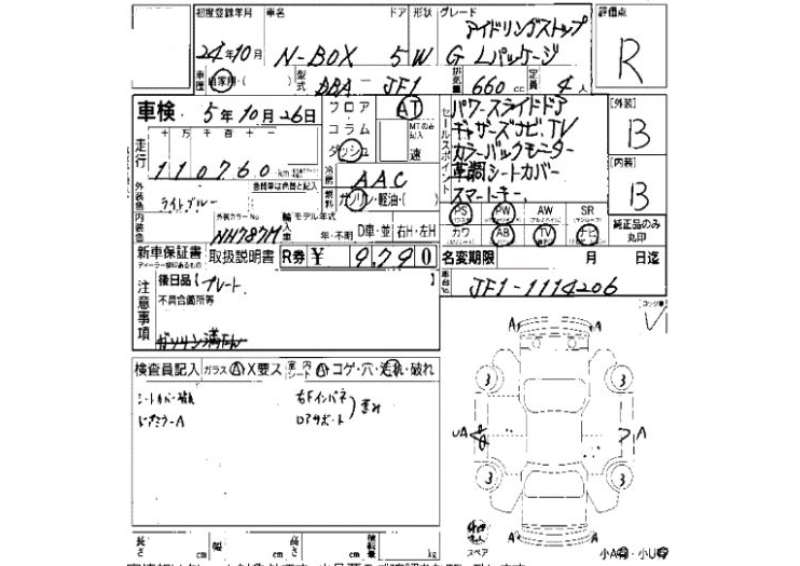 初度登録年月 車名 ドア 形状 グレード 評価点
24年10月 N-BOX 5 W アイドリングストップ R
G Lパッケージ
車歴 自家用・( ) 型式 DBA- JF1 排気量 660 cc 定員 4 人
車検 5年10月26日 フロア AT
コラム MTのみ記入
ダッシュ 速
セールスポイント パワースライドドア [外装] B
ギャザーズナビ、TV
カラーバックモニター
革調シートカバー [内装] B
スマートキー
走行 十 万 千 百 十 一
110760 km
冷房 AAC
外装色 ライトブルー 色替車は色替と記入
燃料 ガソリン・軽油・( )
PS PW AW SR 純正品のみ丸印
カワ AB TV ナビ
内装色 外装カラーNo NH787M 輸入車 モデル年式 年・不明 D車・並 右H・左H
新車保証書 取扱説明書 R券 ¥ 9,790 名変期限 月 日迄
ディーラー印にあるもの
車台No. JF1-1114206
注意事項 後日品【プレート 】
不具合箇所等
ガソリン満タン
検査員記入 ガラス A X要ス 室内シート A コゲ・穴・汚れ・破れ
シートカバー破れ 右Fインパネ
ロアサポート 歪み
A A
3 3
UA A
3 3
A A
スペア
長さ cm 幅 cm 高さ cm 積載量 kg
小A有・小U有